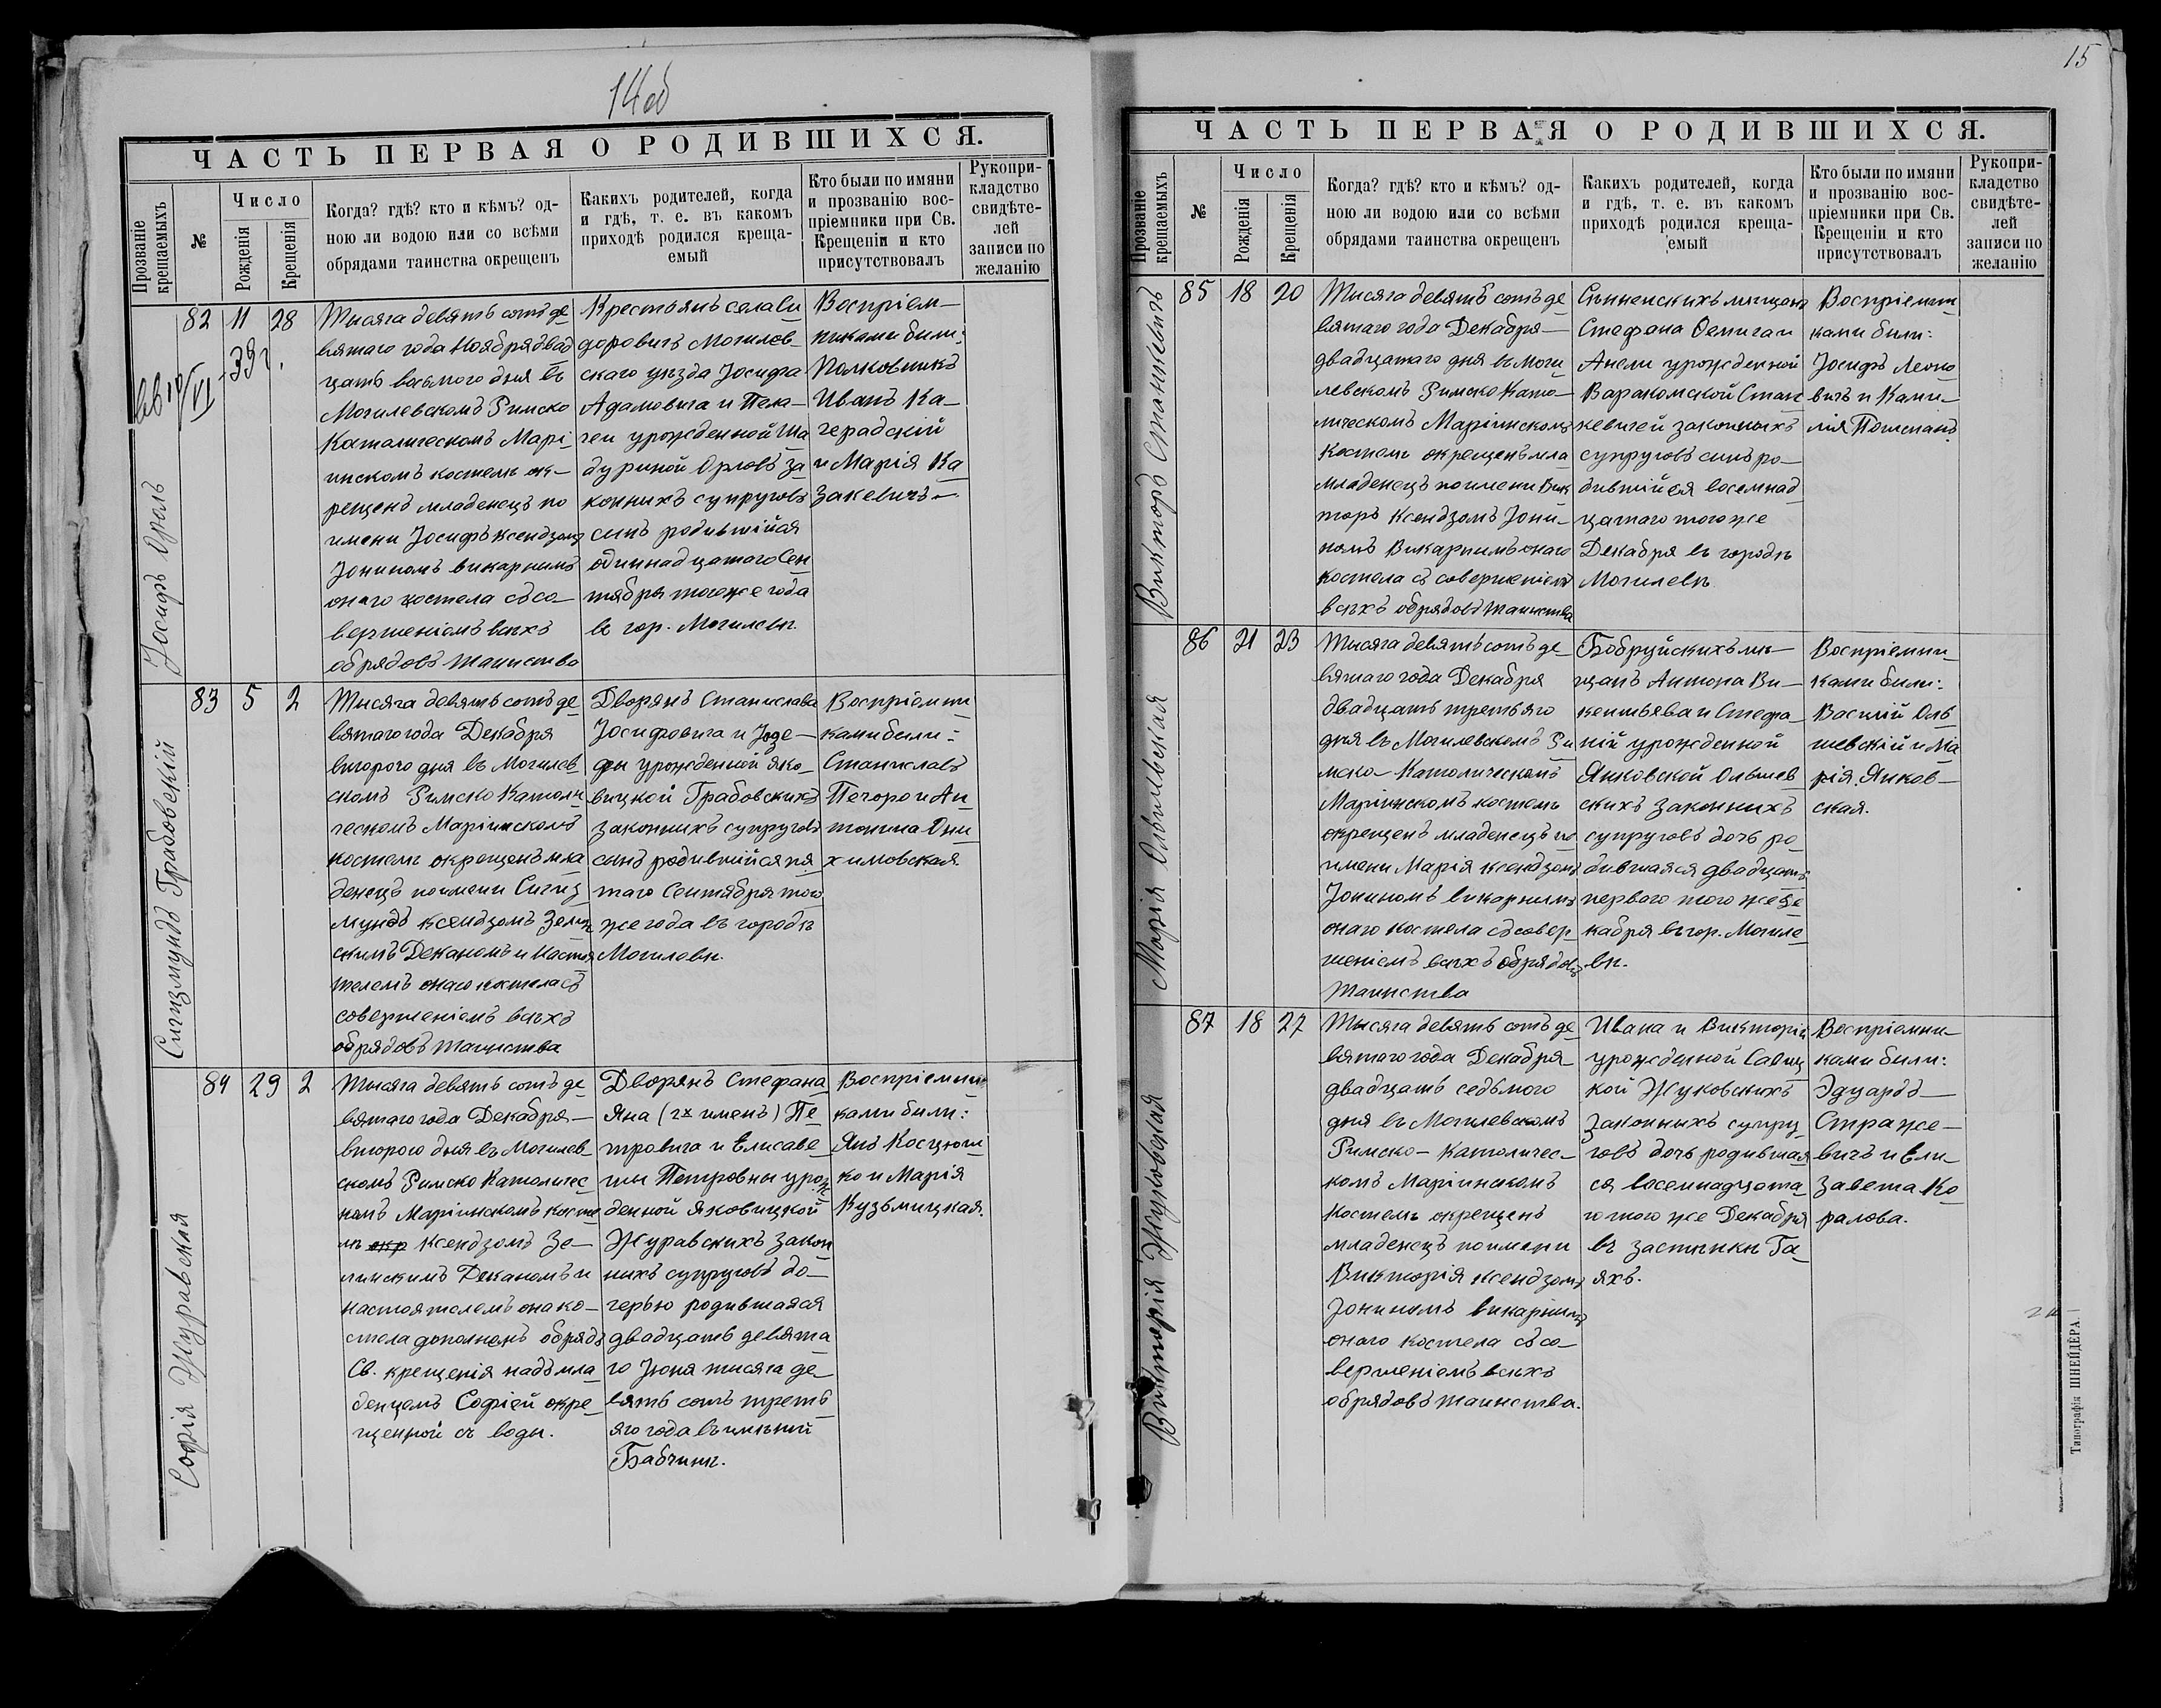 14об
ЧАСТЬ ПЕРВАЯ О РОДИВШИХСЯ.
Прозваніе крещаемыхъ
№
Число
Рожденія
Крещенія
Когда? гдѣ? кто и кѣмъ? од-
ною ли водою или со всѣми
обрядами таинства окрещенъ
Какихъ родителей, когда
и гдѣ, т. е. въ какомъ
приходѣ родился креща-
емый
Кто были по имяни
и прозванію вос-
пріемники при Св.
Крещеніи и кто
присутствовалъ
Рукопри-
кладство
свидѣте-
лей
записи по
желанію
Іосифъ Орелъ
82
11
28
10/VI -39г.
Тысяча девятьсотъ де
вятаго года Ноября двад
цать восьмого дня въ
Могилевскомъ Римско
Католическомъ Марі-
инскомъ костелѣ ок-
рещенъ младенецъ по
имени Іосифъ ксендзомъ
Іониномъ викарнымъ
онаго костела съ со-
вершеніемъ всѣхъ
обрядовъ таинства
Крестьянъ села Си
доровичъ Могилев-
скаго уѣзда Іосифа
Адамовича и Пела-
геи урожденной Ша
дуриной Орловъ за
конныхъ супруговъ
сынъ родившійся
одиннадцатаго Сен
тября того же года
въ гор. Могилевѣ.
Воспріем-
никами были:
Полковникъ
Иванъ Ка-
черадскій
и Марія Ка
закевичъ-.
Сигизмундъ Грабовскій
83
5
2
Тысяча девять сотъ де
вятаго года Декабря
второго дня въ Могилев
скомъ Римско Католи
ческомъ Маріинскомъ
костелѣ окрещенъ мла
денецъ по имени Сигиз
мундъ ксендзомъ Зелин
скимъ Деканомъ и Настоя
телемъ онаго костела съ
совершеніемъ всѣхъ
обрядовъ таинства
Дворянъ Станислава
Іосифовича и Юзе-
фы урожденной Яко-
вицкой Грабовскихъ
законныхъ супруговъ
сынъ родившійся пя
таго Сентября того
же года въ городѣ
Могилевѣ.
Воспріемни
ками были:
Станиславъ
Печоро и Ан
тонина Они
химовская
Софія Журавская
84
29
2
Тысяча девять сотъ де
вятаго года Декабря-
второго дня въ Могилев
скомъ Римско Католичес
комъ Маріинскомъ косте
лѣ окр ксендзомъ Зе-
линскимъ Деканомъ и
настоятелемъ она ко-
стела дополненъ обрядъ
Св. крещенія надъ мла
денцемъ Софіей окре-
щенной съ воды.
Дворянъ Стефана
Яна (2х именъ) Пе
тровича и Елисаве
ты Петровны урож
денной Яковицкой
Журавскихъ закон
ныхъ супруговъ до-
черью родившаяся
двадцать девята
го Іюня тысяча де-
вять сотъ треть
яго года въ имѣніи
Бабчинѣ.
Воспріемни
ками были:
Янъ Косцюш
ко и Марія
Кузьмицкая.
15
ЧАСТЬ ПЕРВАЯ О РОДИВШИХСЯ.
Прозваніе крещаемыхъ
№
Число
Рожденія
Крещенія
Когда? гдѣ? кто и кѣмъ? од-
ною ли водою или со всѣми
обрядами таинства окрещенъ
Какихъ родителей, когда
и гдѣ, т. е. въ какомъ
приходѣ родился креща-
емый
Кто были по имяни
и прозванію вос-
пріемники при Св.
Крещеніи и кто
присутствовалъ
Рукопри-
кладство
свидѣте-
лей
записи по
желанію
Викторъ Станкевичъ
85
18
20
Тысяча девять сотъ де
вятаго года Декабря-
двадцатаго дня въ Моги
левскомъ Римско Като-
лическомъ Маріинскомъ
Костелѣ окрещенъ мла
младенецъ по имени Вик
торъ Ксендзомъ Іони-
номъ Викарнымъ онаго
костела съ совершеніемъ
всѣхъ обрядовъ таинства
Сѣнненскихъ мѣщанъ
Стефана Осипа и
Анели урожденной
Варакомской Стан
кевичей законныхъ
супруговъ сынъ ро-
дившійся восемнад
цатаго того же
Декабря въ городѣ
Могилевѣ
Воспріемни
ками были:
Іосифъ Леоно
вичъ и Ками-
лія Потпанъ
Марія Ольшевская
86
21
23
Тысяча девять сотъ де-
вятаго года Декабря
двадцать третьяго
дня въ Могилевскомъ Ри
мско-Католическомъ
Маріинскомъ костелѣ
окрещенъ младенецъ по
имени Марія ксендзомъ
Іониномъ викарнымъ
онаго костела съ совер-
шеніемъ всѣхъ обрядовъ
таинства
Бобруйскихъ мѣ-
щанъ Антона Ви-
кентьева и Стефа-
ніи урожденной
Янковской Ольшев
скихъ законныхъ
супруговъ дочь ро-
дившаяся двадцать
перваго того же Де
кабря въ гор. Могиле
вѣ.
Воспріемни-
ками были:
Василій Оль
шевскій и Ма
рія Янков-
ская.
Викторія Жуковская
87
18
27
Тысяча девять сотъ де
вятаго года Декабря-
двадцать седьмого
дня въ Могилевскомъ
Римско-Католичес-
комъ Маріинскомъ
Костелѣ окрещенъ
младенецъ по имени
Викторія ксендзомъ
Іониномъ викарнымъ
онаго костела съ со-
вершеніемъ всѣхъ
обрядовъ таинства.
Ивана и Викторіи
урожденной Савиц
кой Жуковскихъ
законныхъ супру
говъ дочь родившая
ся восемнадцата-
го того же Декабря
въ застѣнкѣ Га-
яхъ.
Воспріемни-
ками были:
Эдуардъ-
Страже-
вичъ и Ели-
завета Ко
ралова.
Типографія ШНЕЙДЕРА.